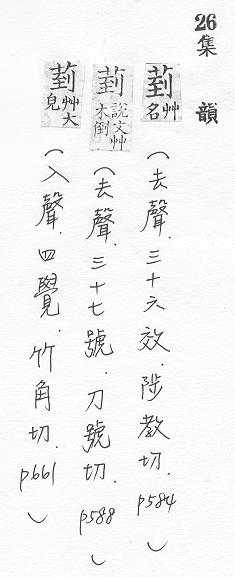 26 集韻
菿 艸名 (去聲.三十六效.陟教切.p584)
菿 說文艸木倒 (去聲.三十七號.刀號切.p588)
菿 艸大皃 (入聲.四覺.竹角切.p661)